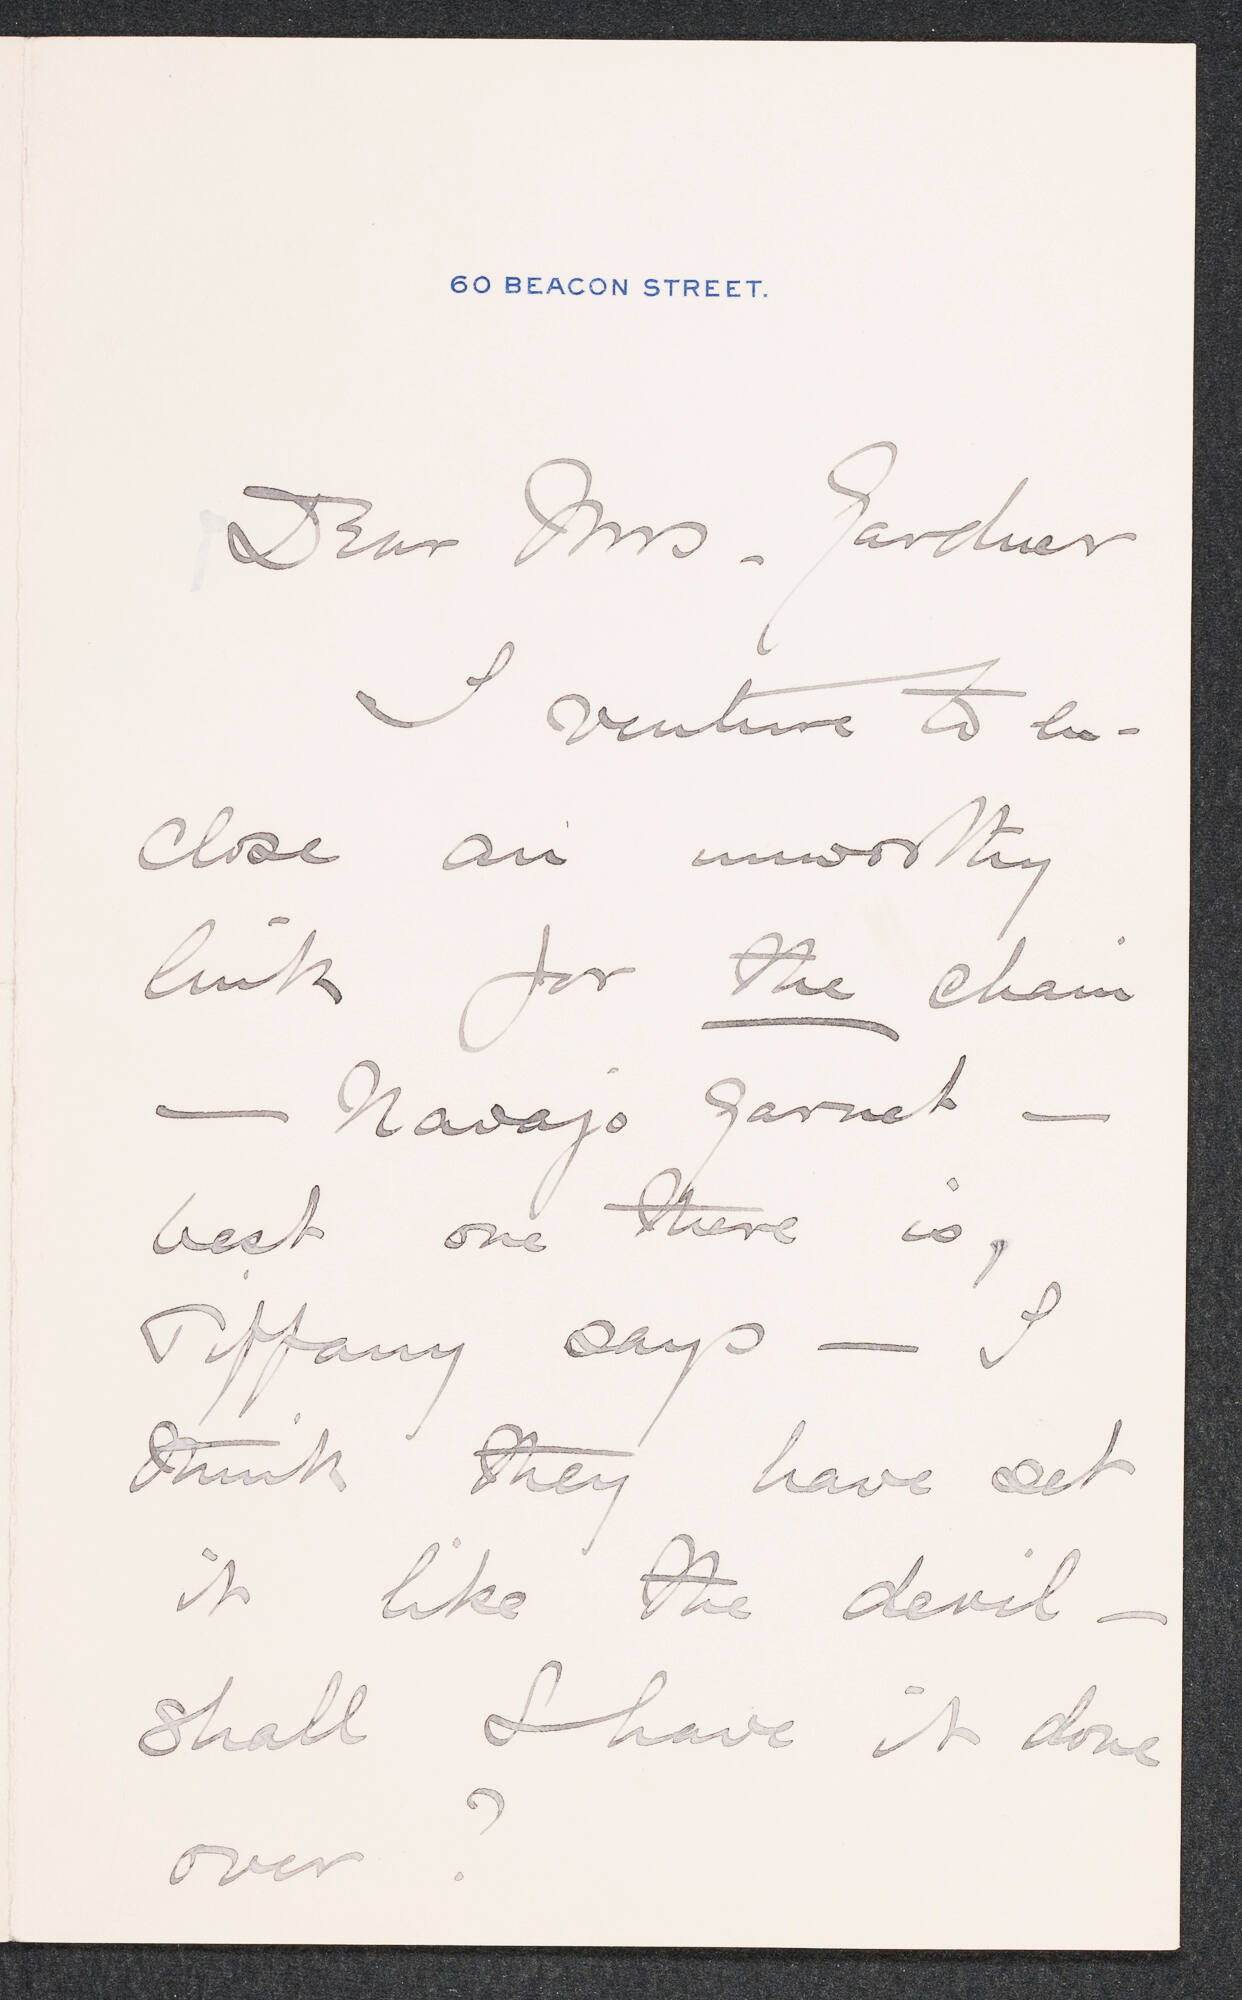 60 BEACON STREET.
Dear Mrs. Gardner
I venture to en-
close an unworthy
link for the chain
— Navajo garnet —
best one there is,
Tiffany says — I
think they have set
it like the devil —
shall I have it done
over?